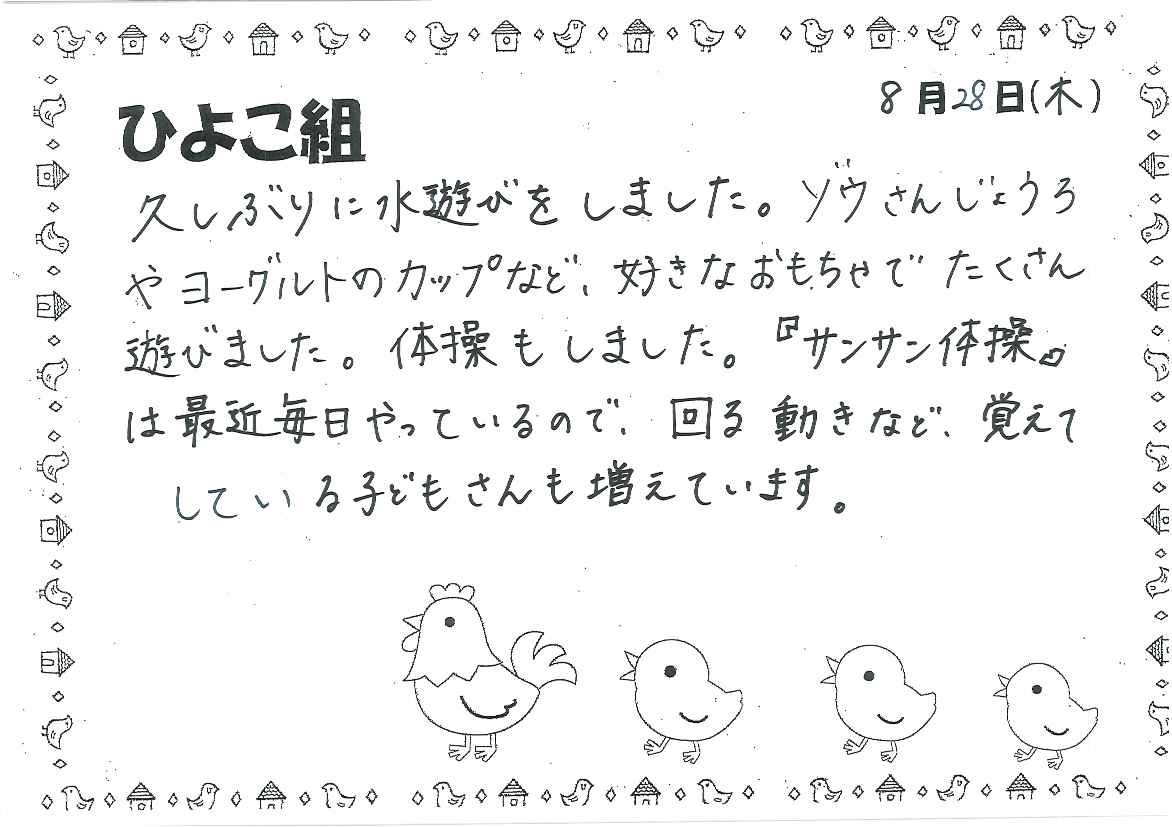 8月28日(木)
ひよこ組
久しぶりに水遊びをしました。ゾウさんじょうろ
やヨーグルトのカップなど、好きなおもちゃでたくさん
遊びました。体操もしました。『サンサン体操』
は最近毎日やっているので、回る動きなど、覚えて
している子どもさんも増えています。